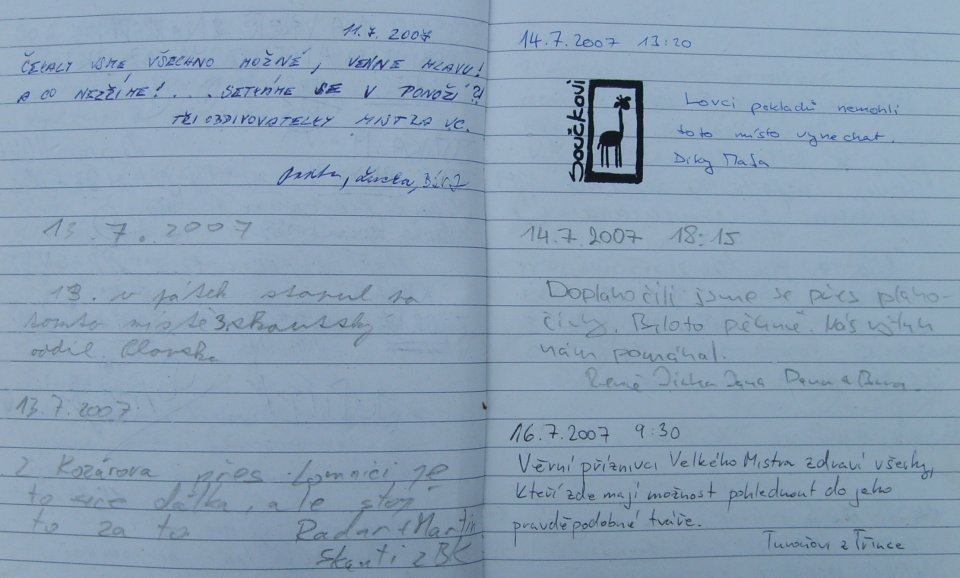 11.7.2007
ČEKALY JSME VŠECHNO MOŽNÉ, VENNE HLAVU!
A CO NEZŽÍME! ... SETKÁME SE V PONOŽÍ?!
TŘI OBDIVOVATELKY MISTRA VC.
13.7.2007
13. v pátek stanul na
tomto místě 3. skautský
oddíl.
13.7.2007
Z Kozárova přes Lomnici je
to sice dálka, ale stojí
to za to Radar + Martin
Skauti z BK
14.7.2007 13:20
Součkovi
Lovci pokladů nemohli
toto místo vynechat.
Díky Máša
14.7.2007 18:15
Doplahočili jsme se přes plaho-
činy. Bylo to pěkné. Náš výtah
nám pomáhal.
René Jirka Jana Dana a Bára.
16.7.2007 9:30
Věrní příznivci Velkého Mistra zdraví všechny,
kteří zde mají možnost pohlednout do jeho
pravděpodobné tváře.
z Třince